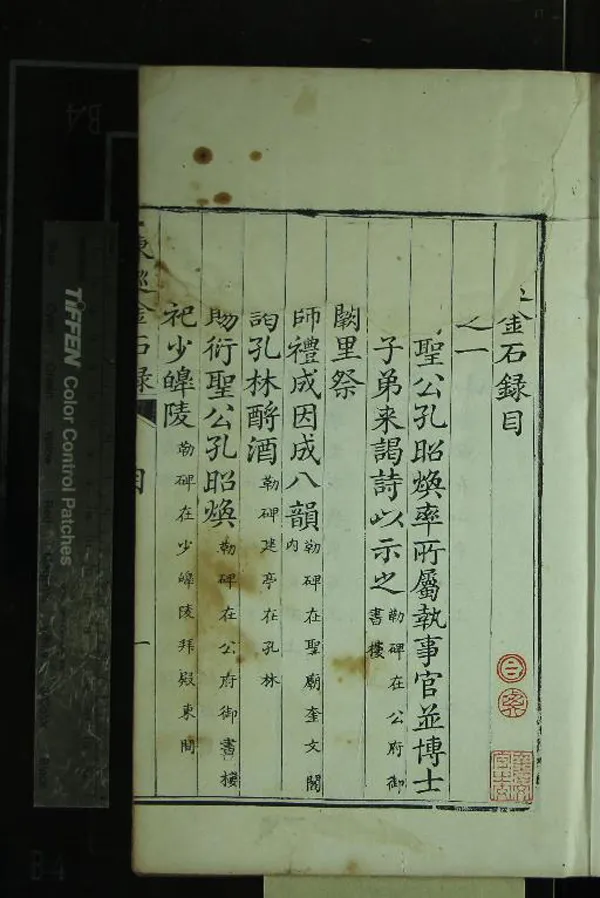 金石録目
之一
聖公孔昭煥率所屬執事官並博士
子弟来謁詩以示之勒碑在公府御書樓
闕里祭
師禮成因成八韻勒碑在聖廟奎文閣内
詣孔林酹酒勒碑建亭在孔林
賜衍聖公孔昭煥勒碑在公府御書樓
祀少皞陵勒碑在少皞陵拜殿東間
金石録
目
一
TIFFEN Color Control Patches